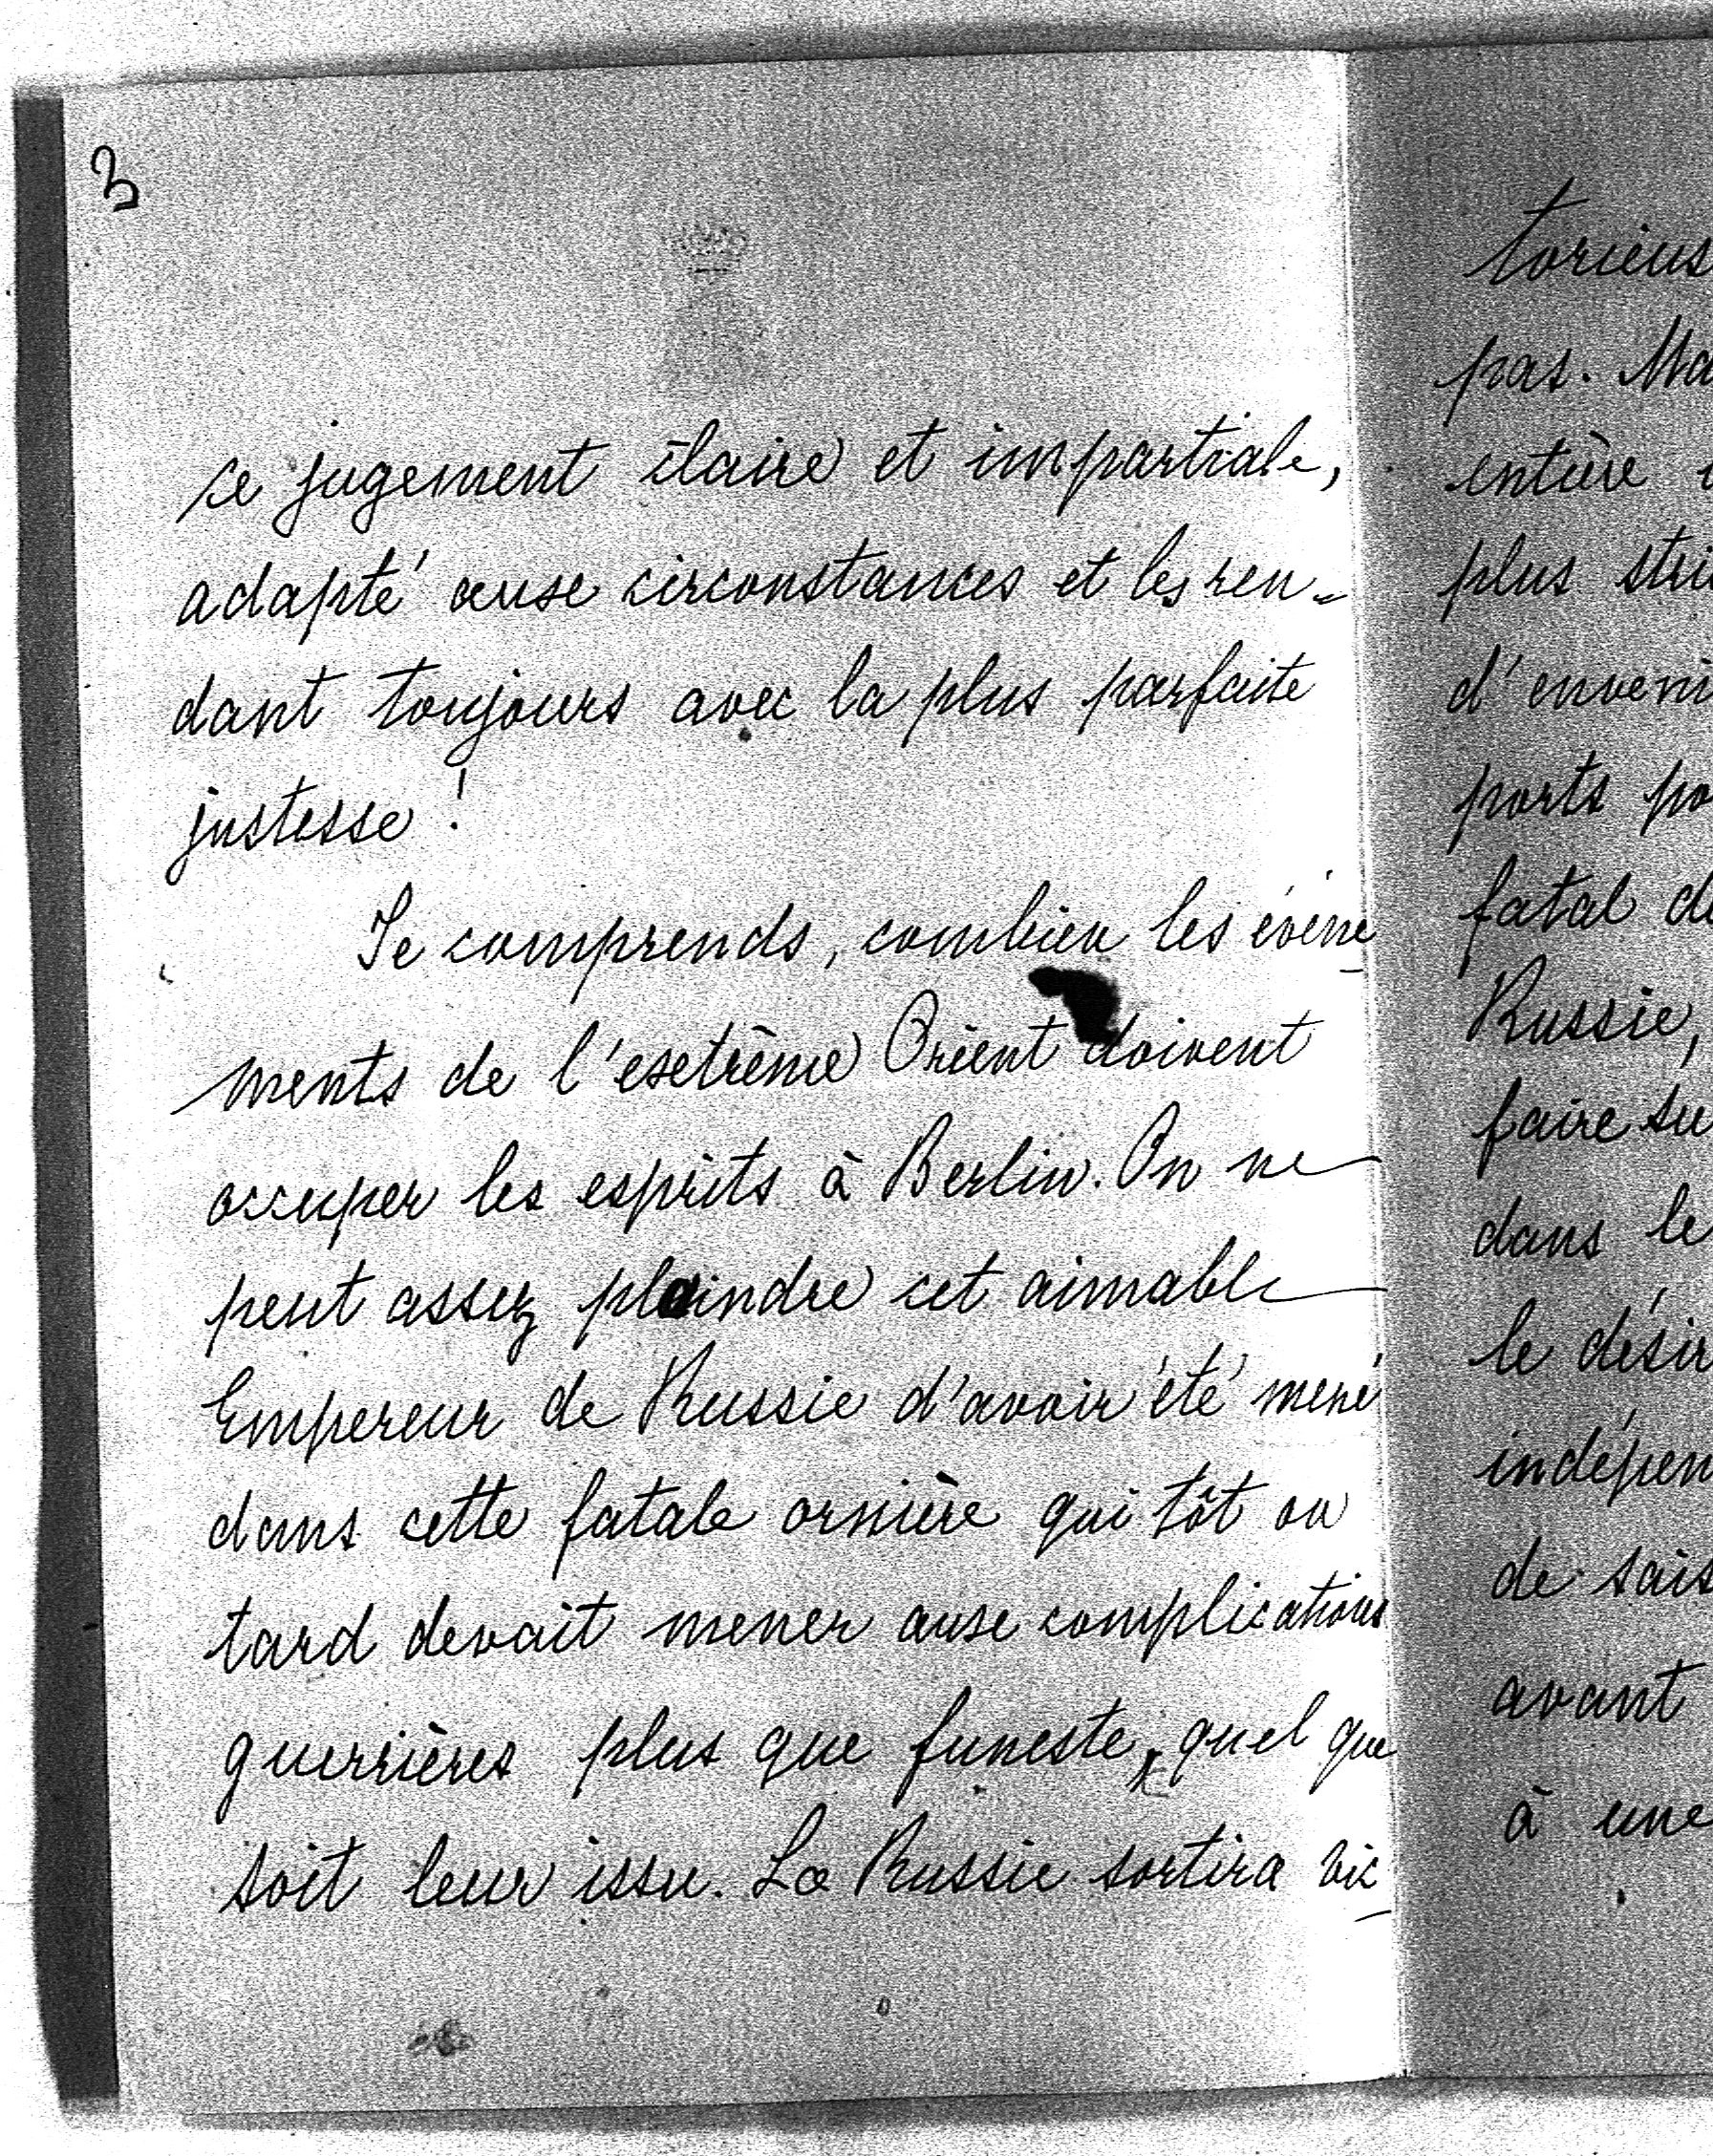 3
ce jugement claire et impartiale,
adapté aux circonstances et les ren-
dant toujours avec la plus parfaite
justesse!
Je comprends, combien les évène-
ments de l'extrême Orient doivent
occuper les esprits à Berlin. On ne
peut assez plaindre cet aimable
Empereur de Russie d'avoir été mené
dans cette fatale ornière qui tôt ou
tard devait mener aux complications
guerrières plus que funeste, quel que
soit leur issu. La Russie sortira vic-
torieus
pas. Ma
entière
plus stri
d'enveni
ports po
fatal de
Russie,
faire su
dans le
le désir
indépen
de sais
avant
à une